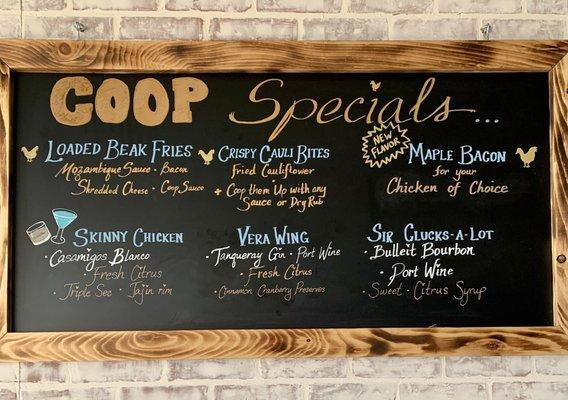 COOP Specials...
LOADED BEAK FRIES
Mozambique Sauce · Bacon
Shredded Cheese · Coop Sauce
CRISPY CAULI BITES
Fried Cauliflower
+ Coop them Up with any
Sauce or Dry Rub
NEW
FLAVOR
MAPLE BACON
for your
Chicken of Choice
SKINNY CHICKEN
· Casamigos Blanco
· Fresh Citrus
· Triple Sec · Tajin rim
VERA WING
· Tanqueray Gin · Port Wine
· Fresh Citrus
· Cinnamon Cranberry Preserves
SIR CLUCKS-A-LOT
· Bulleit Bourbon
· Port Wine
· Sweet · Citrus Syrup